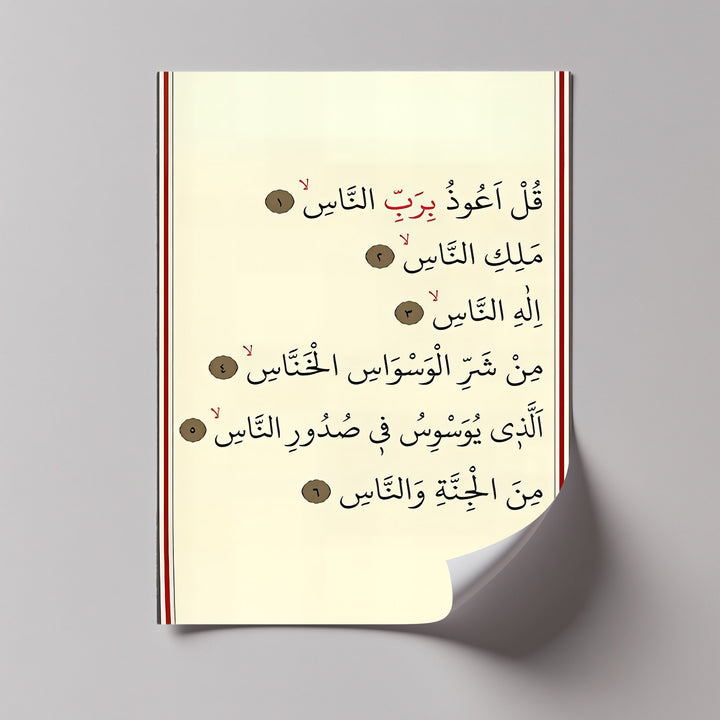 قُلْ اَعُوذُ بِرَبِّ النَّاسِۙ ١
مَلِكِ النَّاسِۙ ٢
اِلٰهِ النَّاسِۙ ٣
مِنْ شَرِّ الْوَسْوَاسِ الْخَنَّاسِۙ ٤
اَلَّذٖى يُوَسْوِسُ فٖى صُدُورِ النَّاسِۙ ٥
مِنَ الْجِنَّةِ وَالنَّاسِ ٦